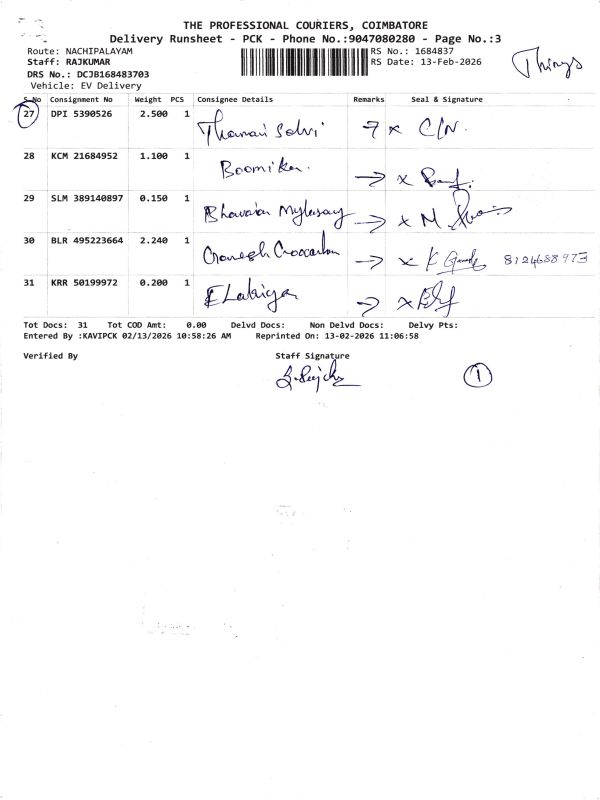 THE PROFESSIONAL COURIERS, COIMBATORE
Delivery Runsheet - PCK - Phone No.:9047080280 - Page No.:3
Route: NACHIPALAYAM RS No.: 1684837
Staff: RAJKUMAR RS Date: 13-Feb-2026
Things
DRS No.: DCJB168483703
Vehicle: EV Delivery
S.No Consignment No Weight PCS Consignee Details Remarks Seal & Signature
27 DPI 5390526 2.500 1 Selvi x C/N.
28 KCM 21684952 1.100 1 Boomika. → x
29 SLM 389140897 0.150 1 → x M
30 BLR 495223664 2.240 1 → x K 8124688973
31 KRR 50199972 0.200 1 ELakiya → x
Tot Docs: 31 Tot COD Amt: 0.00 Delvd Docs: Non Delvd Docs: Delvy Pts:
Entered By :KAVIPCK 02/13/2026 10:58:26 AM Reprinted On: 13-02-2026 11:06:58
Verified By Staff Signature
1